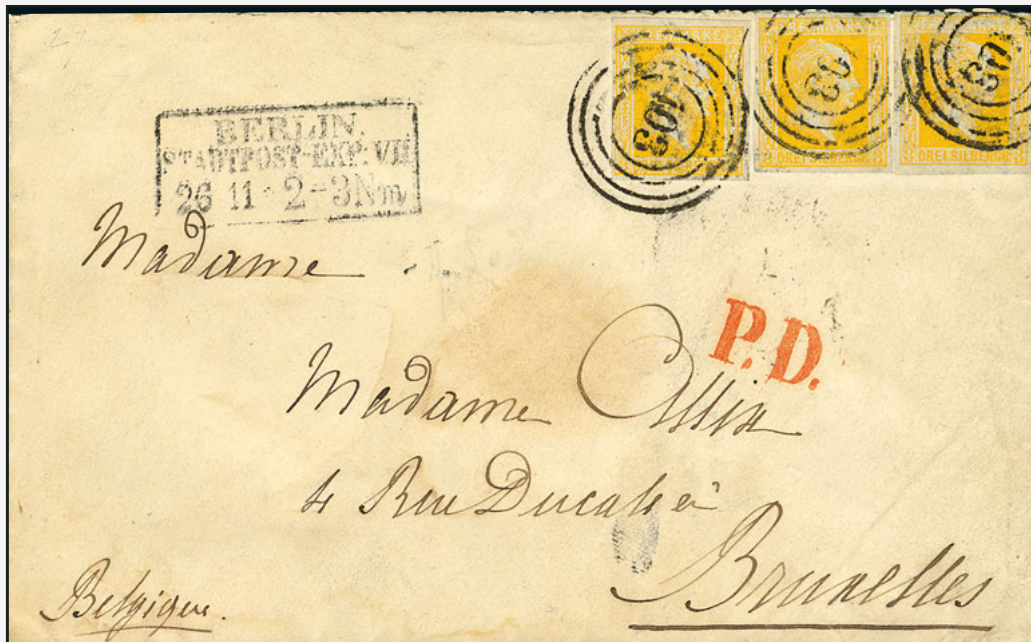 27
BERLIN.
STADTPOST-EXP: VII
26 11 · 2-3 Nm
103
103
103
DREI SILBERGR
DREI SILBERGR
Madame
P.D.
Madame
4 Rue Ducale à
Bruxelles
Belgique.